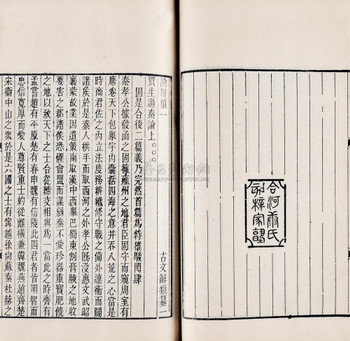 合河康氏
刻梓家塾
古文辭類纂一
論辨類一
賈生過秦論上○○○
固是合後二篇義乃完然首篇為特雄駿閎肆
秦孝公據殽函之固擁雍州之地君臣固守而窺周室有
席卷天下包舉宇內囊括四海之意并吞八荒之心當是
時商君佐之內立法度務耕織修守戰之備外連衡而鬭
諸侯於是秦人拱手而取西河之外孝公既沒惠文武昭
襄蒙故業因遺冊南取漢中西舉巴蜀東割膏腴之地收
要害之郡諸侯恐懼會盟而謀弱秦不愛珍器重寶肥饒
之地以致天下之士合從締交相與為一當此之時齊有
孟嘗趙有平原楚有春申魏有信陵此四君者皆明智而
忠信寬厚而愛人尊賢重士約從離橫兼韓魏燕趙齊楚
宋衛中山之眾於是六國之士有甯越徐尚蘇秦杜赫之